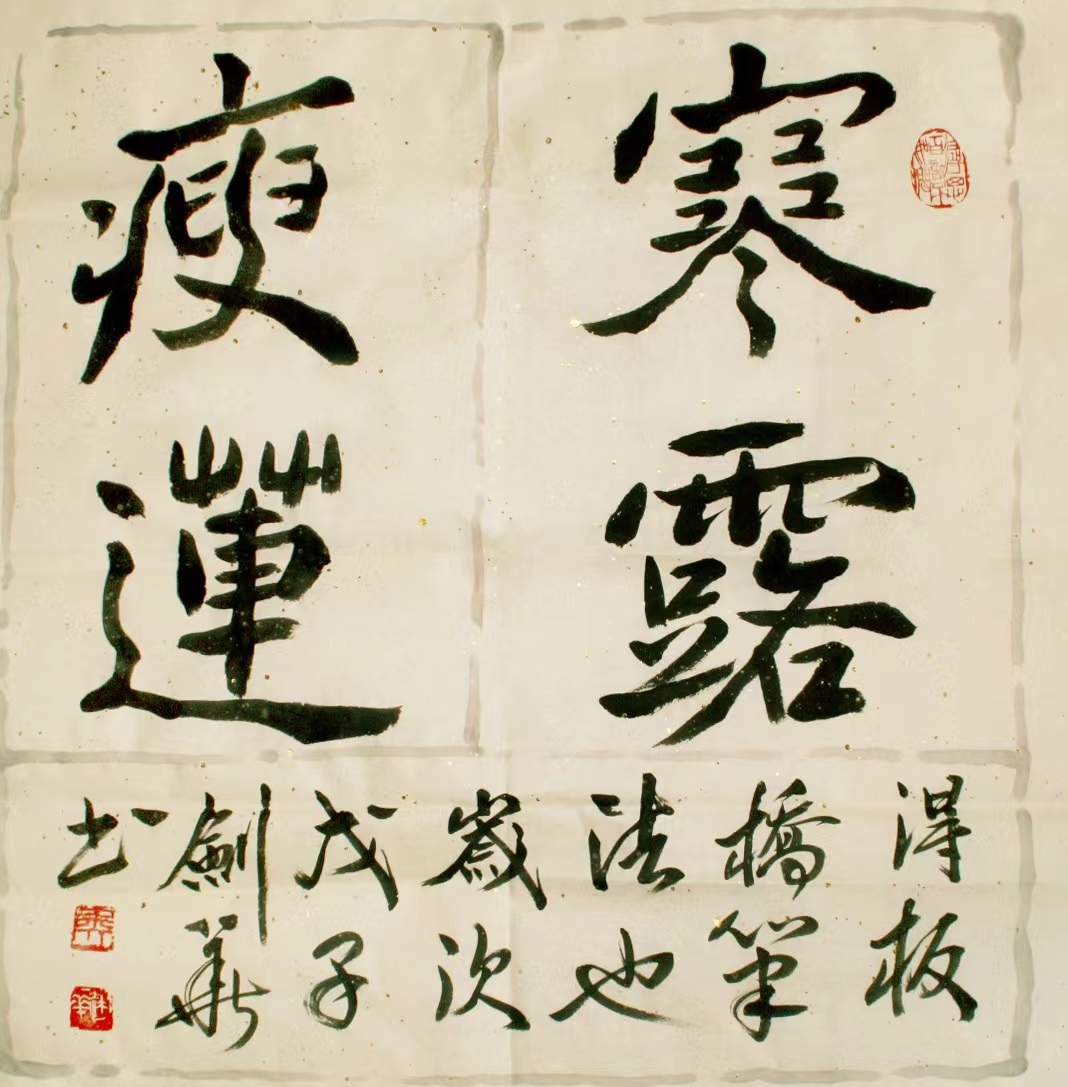 寒露
瘦蓮
得板
橋筆
法也
歲次
戊子
劍華
书